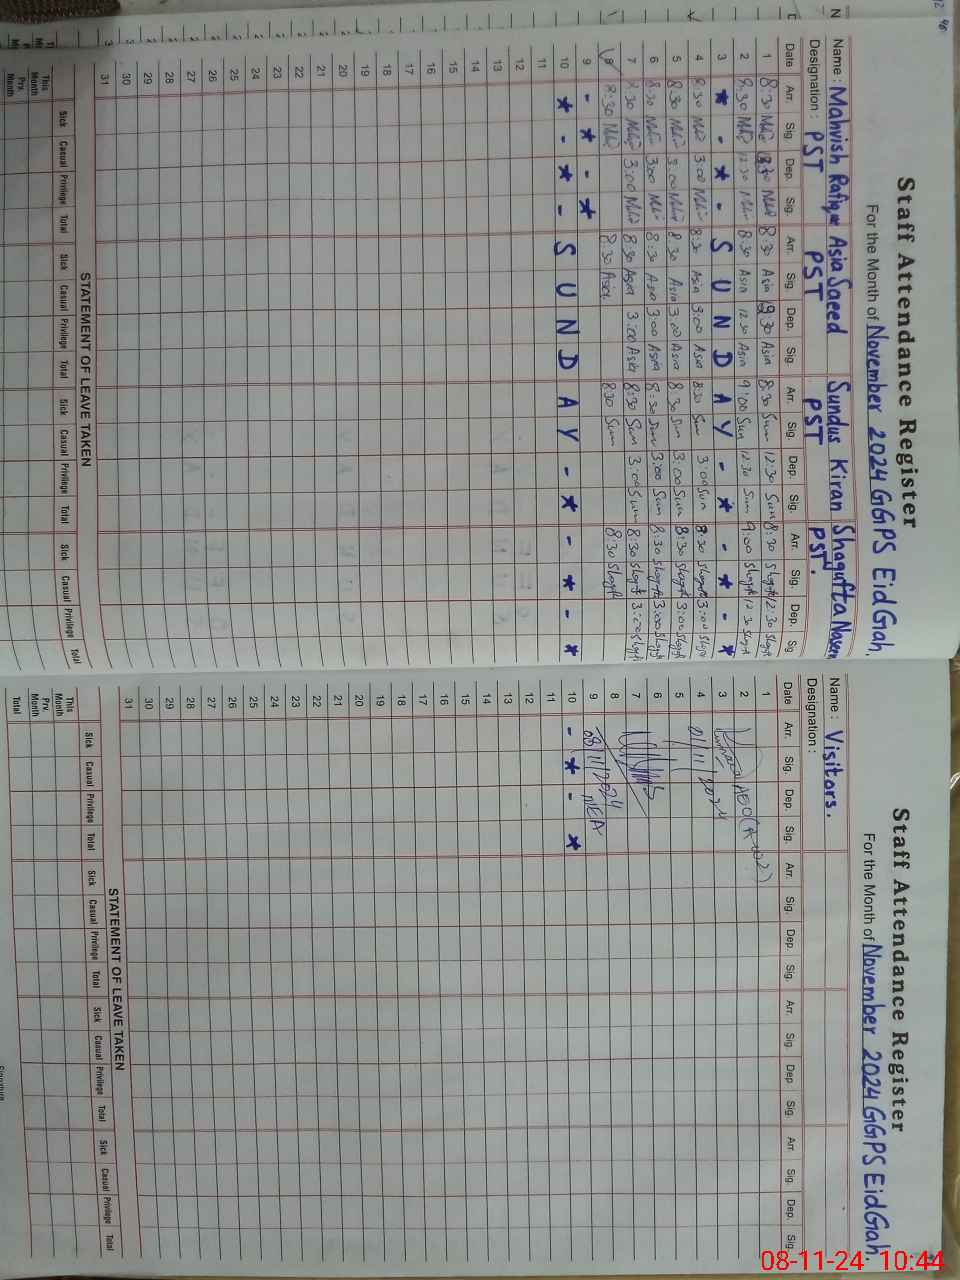 Staff Attendance Register
For the Month of November 2024 GGPS EidGah.
Name : Mahvish Rafique Asia Saeed Sundus Kiran Shagufta Nasreen
Designation : PST PST PST PST.
Date Arr. Sig. Dep. Sig. Arr. Sig. Dep. Sig. Arr. Sig. Dep. Sig. Arr. Sig. Dep. Sig
1 8:30 8:30 Asia 12:30 Asia 8:30 Sun 12:30 Sun 8:30 Shagft 12:30 Shagft
2 8:30 12:30 8:30 Asia 12:30 Asia 9:00 Sun 12:30 Sun 9:00 Shagft 12:30 Shagft
3 * - * - S U N D A Y - * - * - *
4 8:30 3:00 8:30 Asia 3:00 Asia 8:30 Sun 3:00 Sun 8:30 Shagft 3:00 Shagft
5 8:30 3:00 8:30 Asia 3:00 Asia 8:30 Sun 3:00 Sun 8:30 Shagft 3:00 Shagft
6 8:30 3:00 8:30 Asia 3:00 Asia 8:30 Sun 3:00 Sun 8:30 Shagft 3:00 Shagft
7 8:30 3:00 8:30 Asia 3:00 Asia 8:30 Sun 3:00 Sun 8:30 Shagft 3:00 Shagft
8 8:30 8:30 Asia 8:30 Sun 8:30 Shagft
9 - * - *
10 * - * - S U N D A Y - * - * - *
11
12
13
14
15
16
17
18
19
20
21
22
23
24
25
26
27
28
29
30
31
STATEMENT OF LEAVE TAKEN
Sick Casual Privilege Total Sick Casual Privilege Total Sick Casual Privilege Total Sick Casual Privilege Total
This Month
Prv. Month
Staff Attendance Register
For the Month of November 2024 GGPS EidGah.
Name : Visitors.
Designation :
Date Arr. Sig. Dep. Sig. Arr. Sig. Dep. Sig. Arr. Sig. Dep Sig. Arr. Sig. Dep. Sig.
1
2 AEO
3
4 01/11/2024
5
6
7
8
9 08/11/2024 MEA
10 - * - *
11
12
13
14
15
16
17
18
19
20
21
22
23
24
25
26
27
28
29
30
31
STATEMENT OF LEAVE TAKEN
Sick Casual Privilege Total Sick Casual Privilege Total Sick Casual Privilege Total Sick Casual Privilege Total
This Month
Prv. Month
Total
08-11-24 10:44